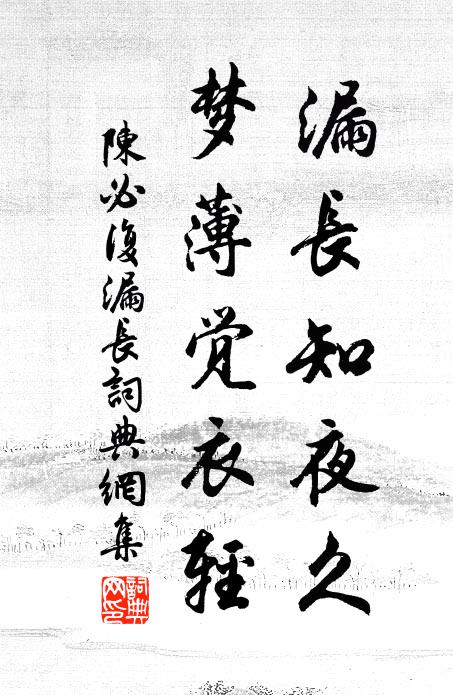 漏長知夜久
梦薄觉衣輕
陳必復漏長詞典網集
詞典網印